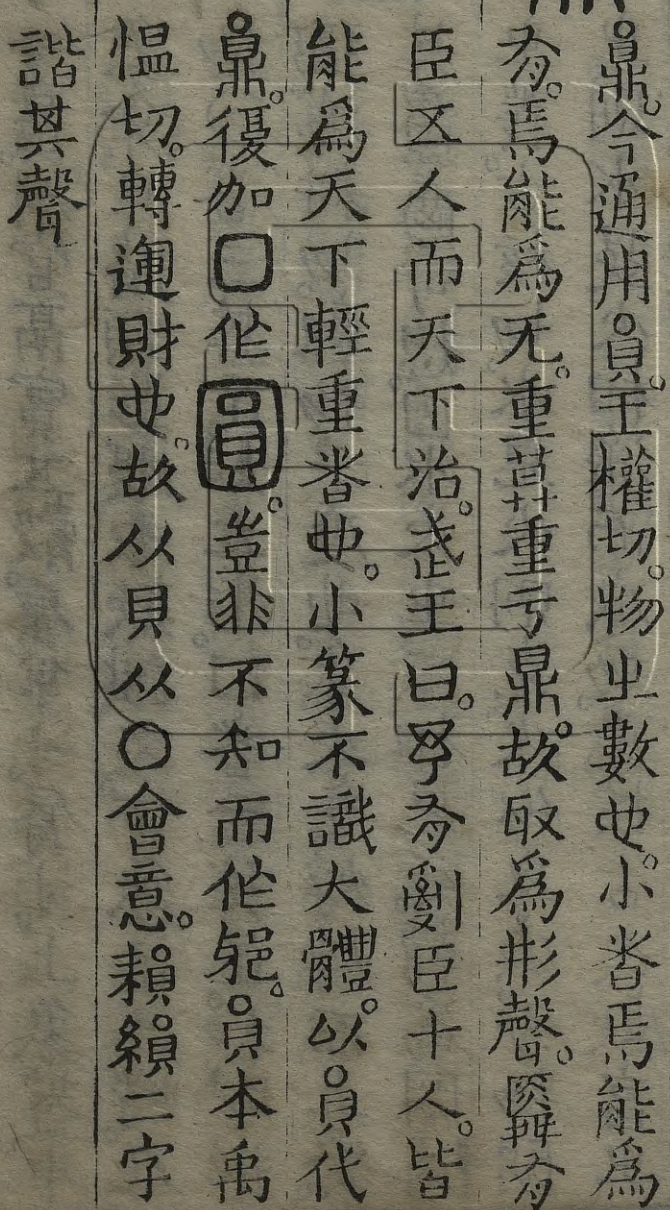 𪔅。今通用員。王權切。物㞢數也。小者焉能爲
有。焉能爲无。重莫重亏鼎。故取爲形聲。舜有
臣五人而天下治。武王曰。予有亂臣十人。皆
能爲天下輕重者也。小篆不識大體。以員代
𪔅。復加囗作圓。豈非不知而作邪。員本禹
愠切。轉運財也。故从貝从〇會意。縜二字
諧其聲